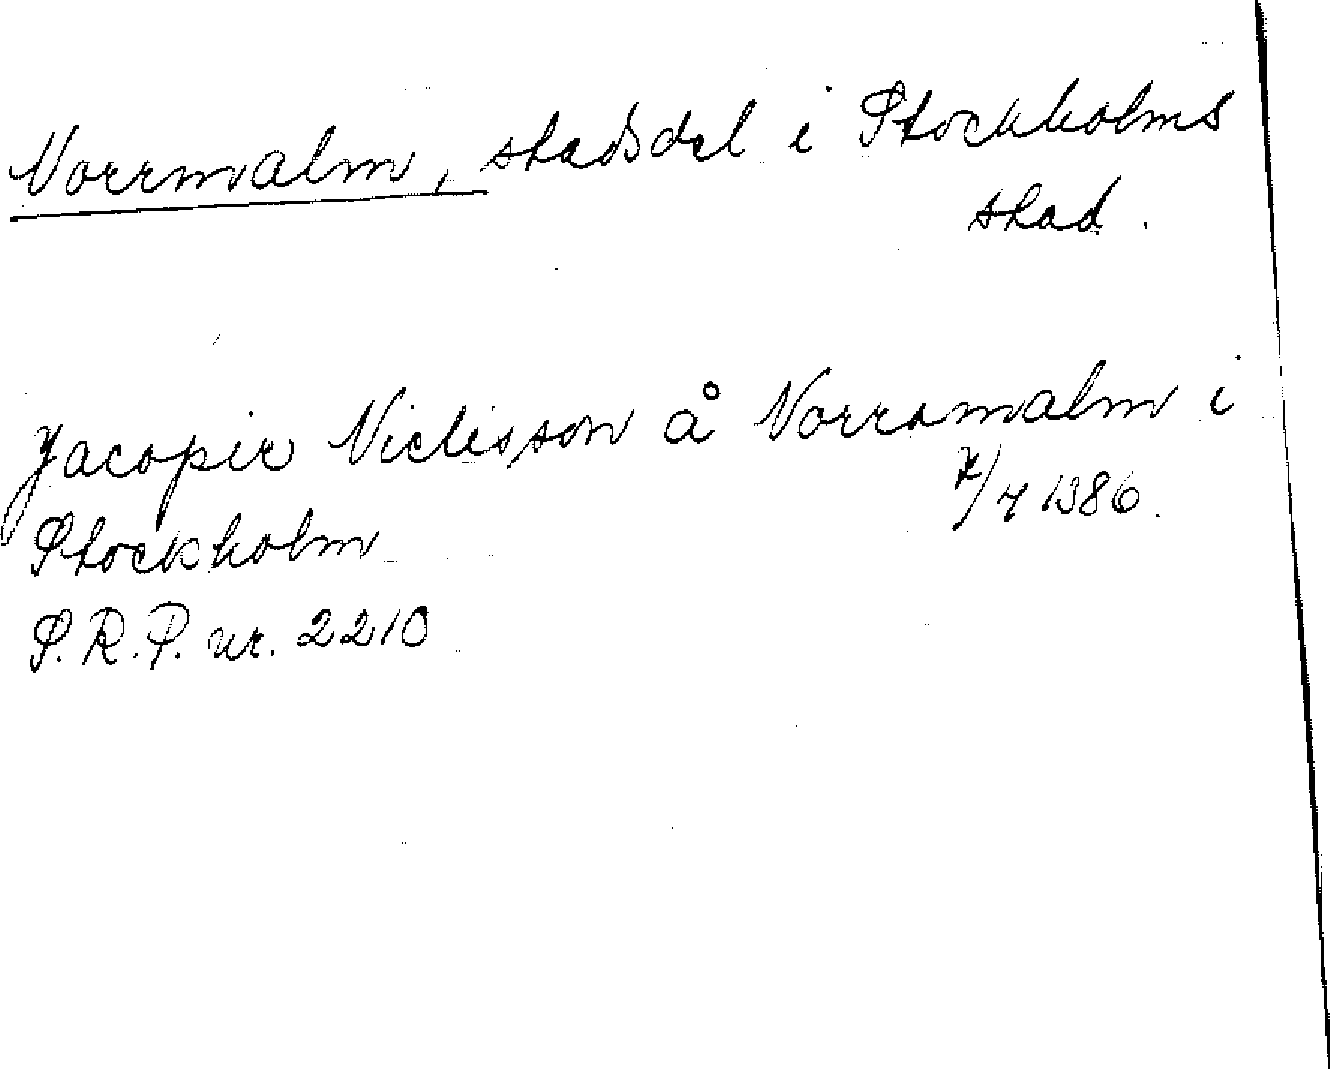 Norrmalm, stadsdel i Stockholms
stad.
Jacopir Niclisson å Norramalm i
Stockholm
/4 1386.
S.R.P. nr. 2210